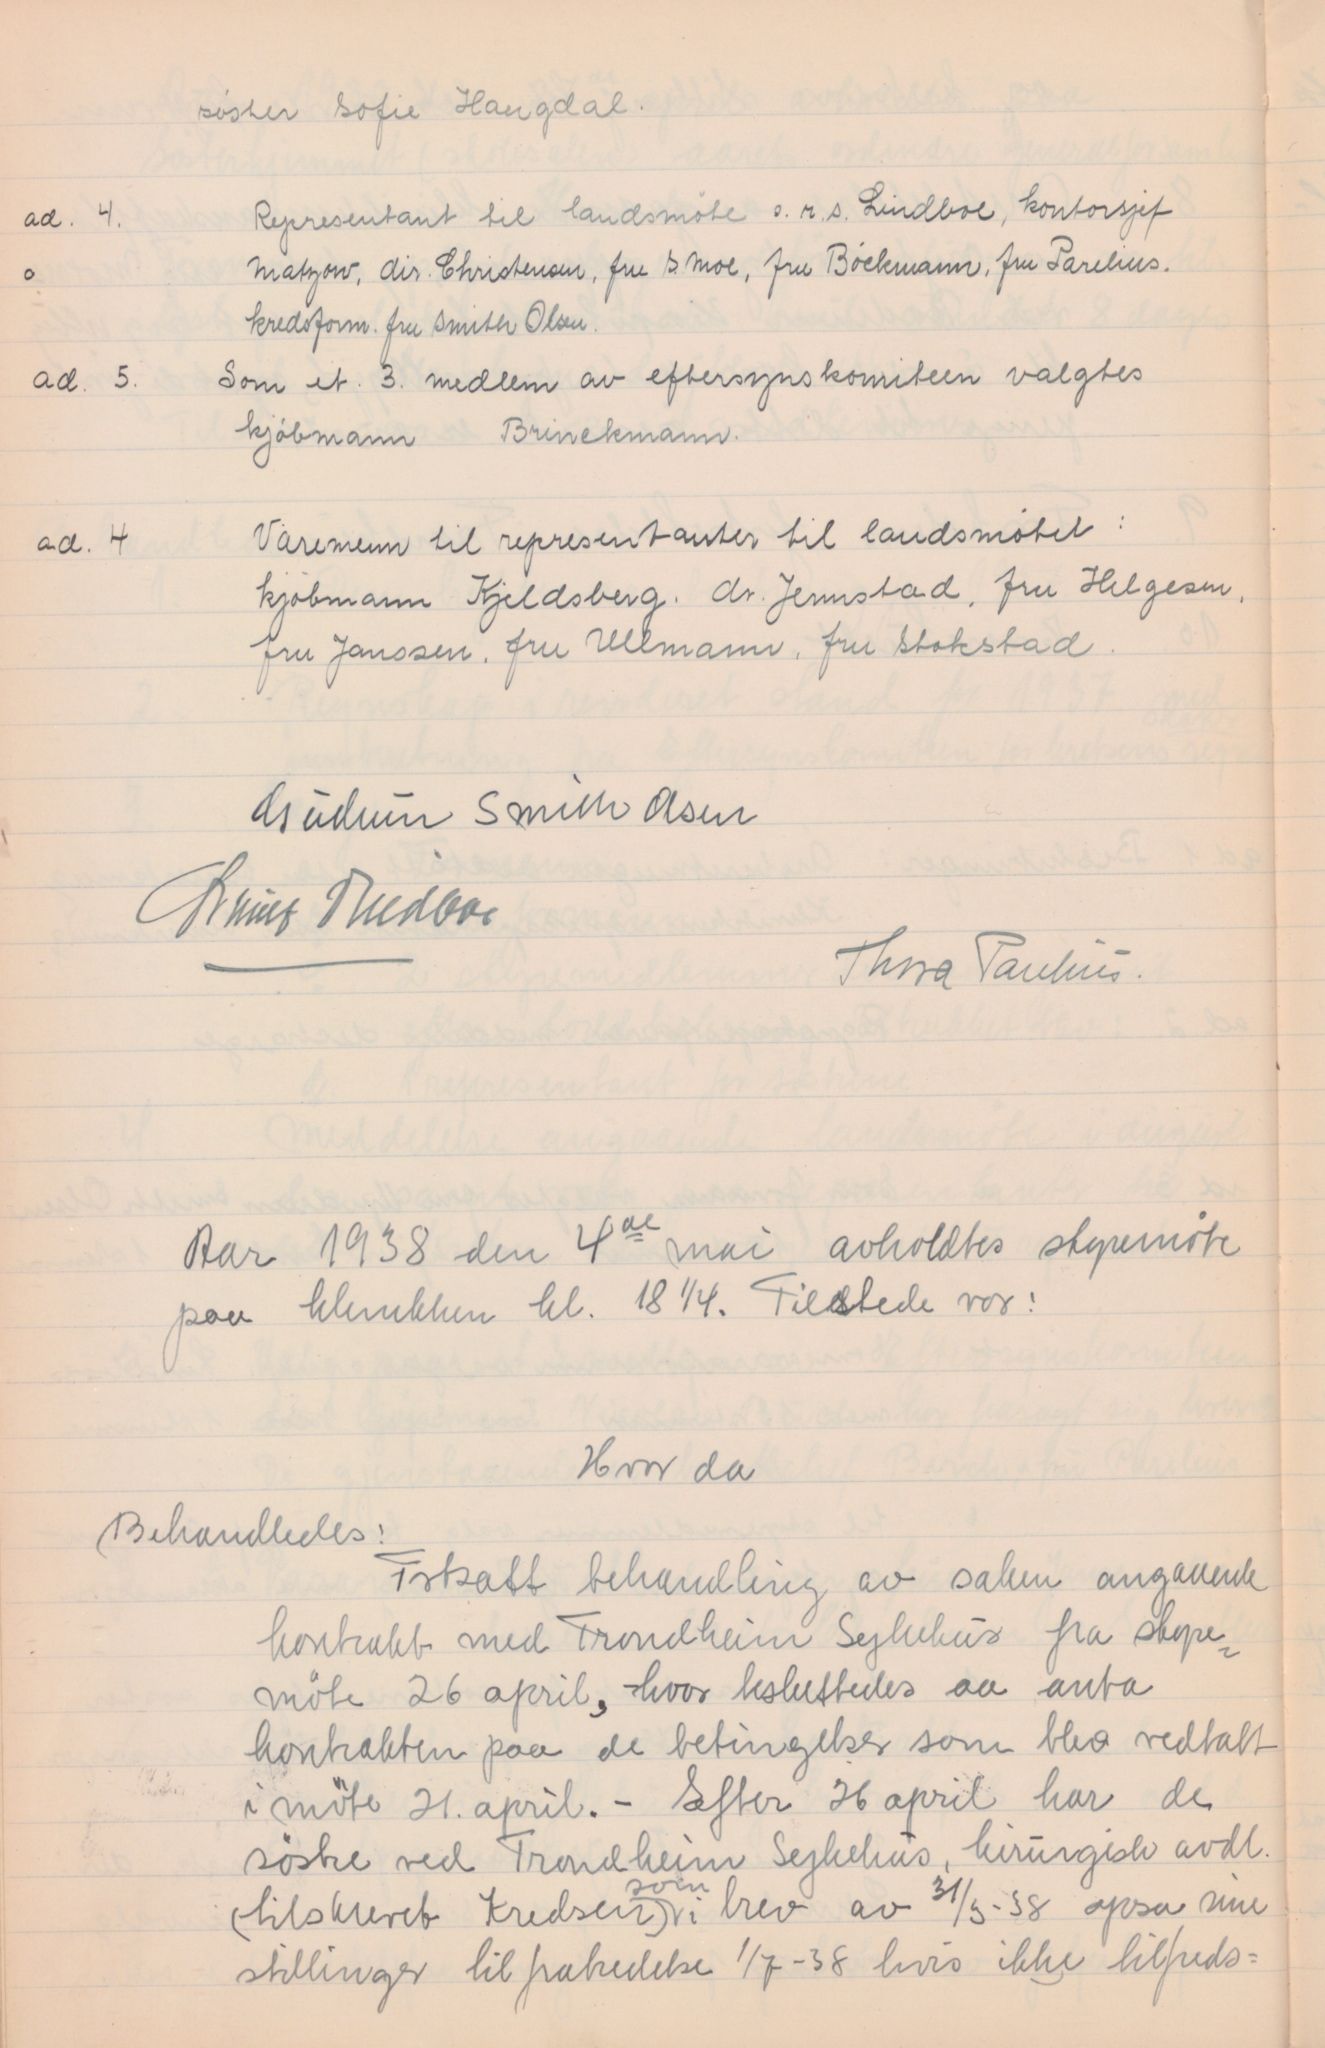 søster Sofie Haugdal.
ad. 4. Representant til landsmöte o.r.s. Lindboe, kontorsjef
o Matzow, dir. Christensen, fru S. Moe, fru Böckmann, fru Parelius.
kredsform. fru Smith Olsen.
ad. 5. Som et. 3. medlem av eftersynskomiteen valgtes
kjöbmann Brinckmann.
ad. 4 Varemenn til representanter til landsmötet:
kjöbmann Kjeldsberg. dr. Jennstad, fru Helgesen,
fru Janssen, fru Ullmann, fru Stokstad.
Gudrun Smith Olsen
Lindboe
Thora Parelius.
Aar 1938 den 4de mai avholdtes styremöte
paa klinikken kl. 18 1/4. Tilstede var:
Hvor da
Behandledes:
Fortsatt behandling av saken angaaende
kontrakt med Trondheim Sykehus fra styre=
möte 26 april, hvor besluttedes aa anta
kontrakten paa de betingelser som blev vedtatt
i möte 21. april. - Efter 26 april har de
söstre ved Trondheim Sykehus, kirurgisk avdl.
(tilskrevet Kredsen) som i brev av 31/3-38 opsa sine
stillinger til fratredelse 1/7-38 hvis ikke tilfreds=